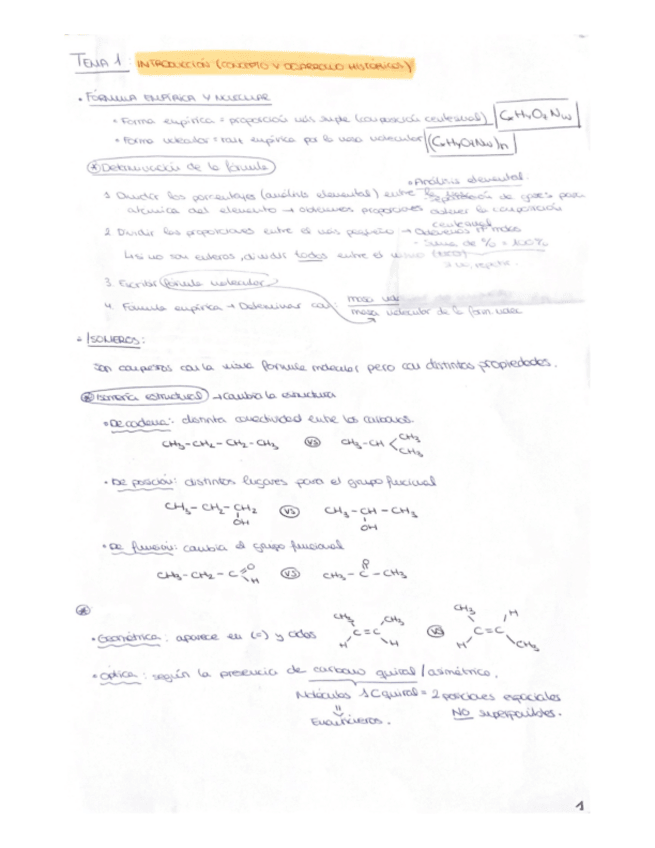 TEMA 1: INTRODUCCIÓN (CONCEPTO Y DESARROLLO HISTÓRICOS)
• FÓRMULA EMPÍRICA Y MOLECULAR
• Forma empírica = proporción más simple (composición centesimal) CxHyOzNw
• Forma molecular = empírica por la masa molecular (CxHyOzNw)n
Determinación de la fórmula
• Análisis elemental:
1 Dividir los porcentajes (análisis elemental) entre la
atómica del elemento → obtenemos proporciones
de gases para
obtener la composición
centesimal
2 Dividir las proporciones entre el más pequeño → Obtenemos nº moles
- Suma de % = 100%
↳ si no son enteros, dividir todos entre el mismo
3. Escribir fórmula molecular
4. Fórmula empírica → Determinar con: masa
masa molecular de la form.
• ISOMEROS:
Son compuestos con la misma fórmula molecular pero con distintas propiedades.
Isomería estructural → cambia la estructura
• De cadena: distinta conectividad entre los carbonos.
CH3-CH2-CH2-CH3 VS CH3-CH CH3
CH3
• De posición: distintos lugares para el grupo funcional
CH3-CH2-CH2 VS CH3-CH-CH3
OH OH
• De función: cambia el grupo funcional
O
CH3-CH2-C O H VS CH3-C-CH3
CH3 CH3 CH3 H
• Geométrica: aparece en (=) y ciclos C=C VS C=C
H H H CH3
• Óptica: según la presencia de carbono quiral/asimétrico.
Moléculas 1C quiral = 2 posiciones espaciales
=
NO superponibles.
Enantiómeros.
1